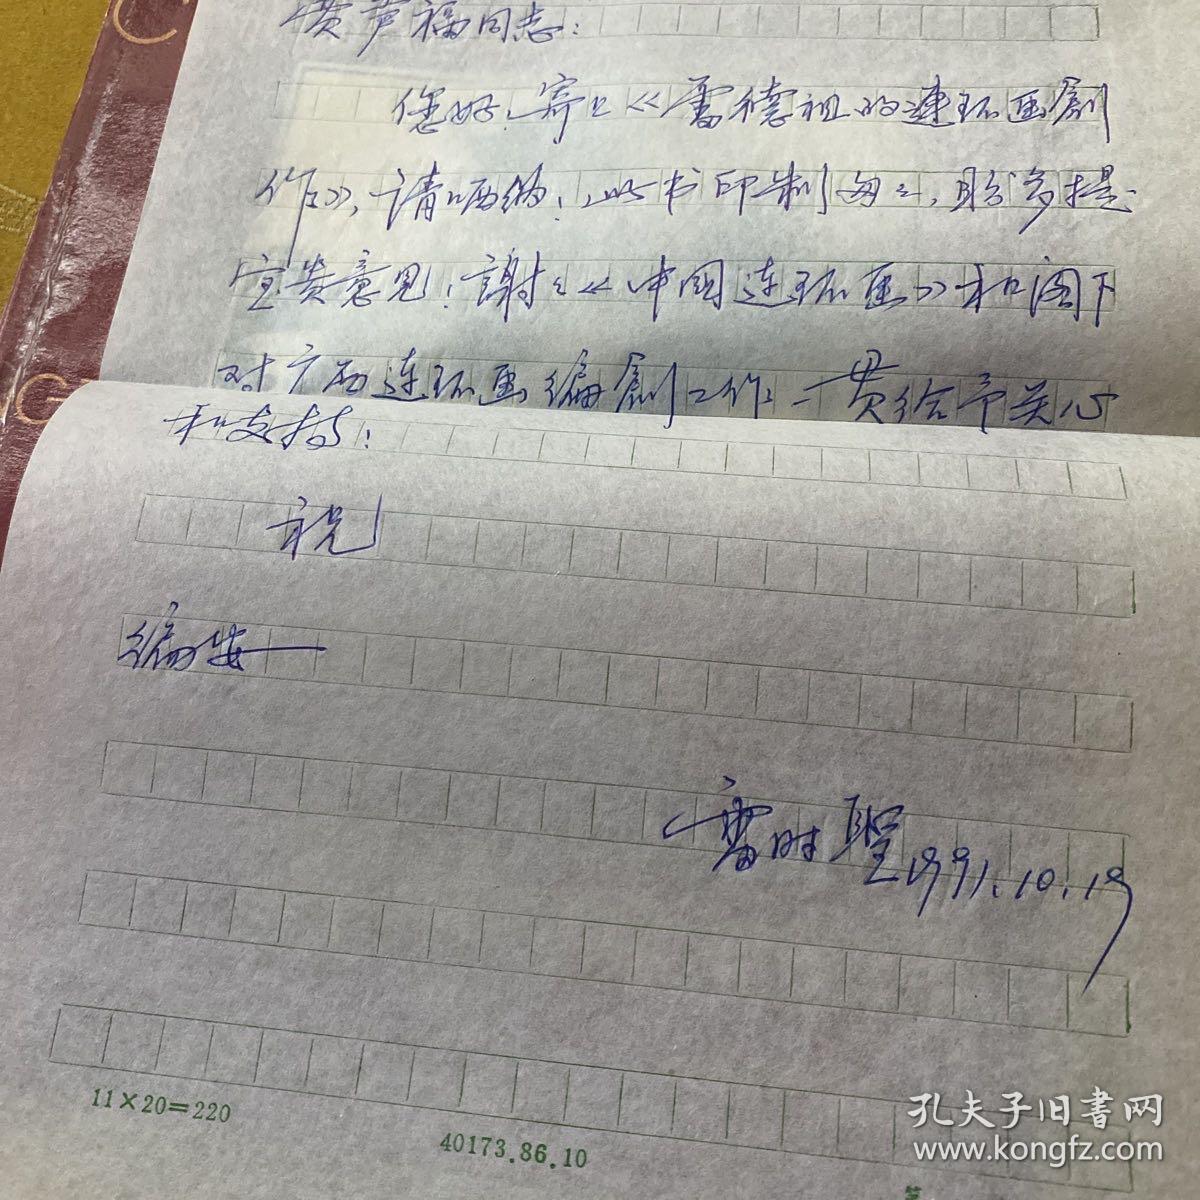 黄声福同志:
您好!寄上《雷德祖的连环画創
作》,请哂纳!此书印制匆匆,盼多提
宝贵意见!謝谢《中国连环画》和阁下
对广西连环画编創工作一贯给予关心
和支持!
祝
编安
雷时聖 1991.10.19
11×20=220
40173.86.10
孔夫子旧書网
www.kongfz.com